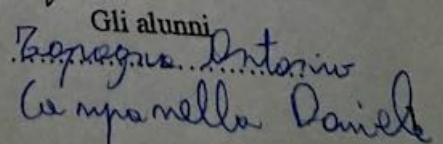 Gli alunni
Antonio
Campanella Daniele